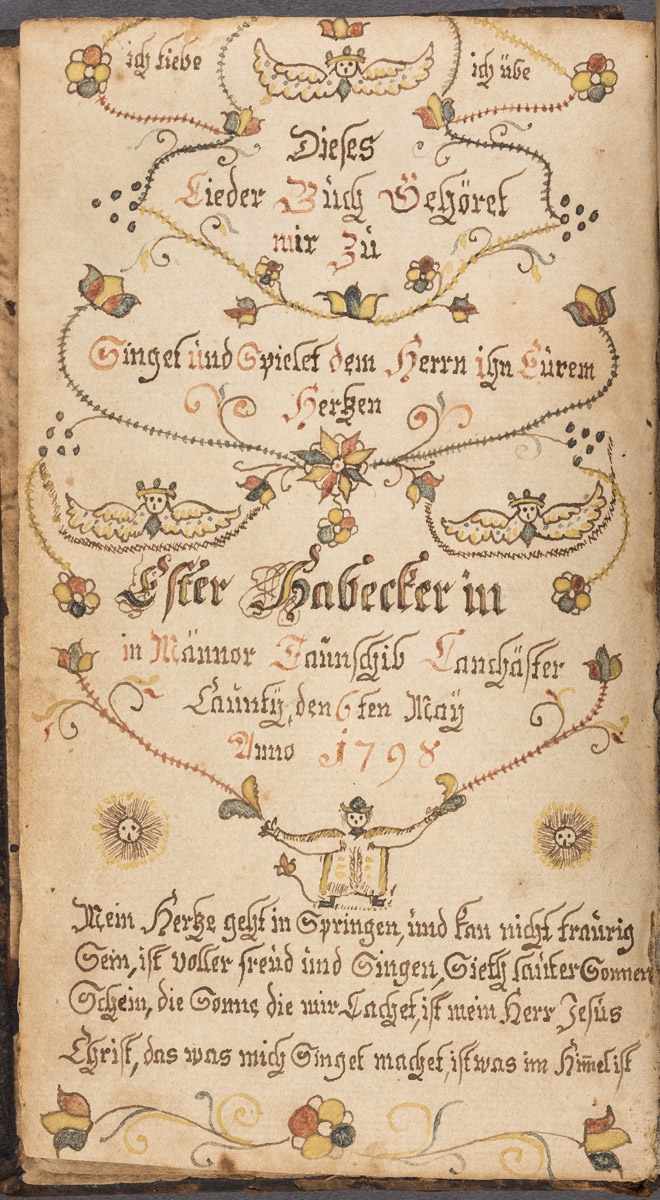 ich liebe
ich übe
Dieses
Lieder Büch Gehöret
mir Zü
Singet ünd Spielet dem Herrn ihn Eürem
Hertzen
Ester Habecker in
in Männor Taünschib Lanchäster
Caünty, den 6ten Maÿ
Anno 1798
Mein Hertze geht in Springen, ünd kan nicht traürig
Sein, ist voller freüd ünd Singen, Sieth laüter Sonnen
Schein, die Sonne die mir Lachet, ist mein Herr Jesüs
Christ, das was mich Singet machet, ist was im Him̄el ist